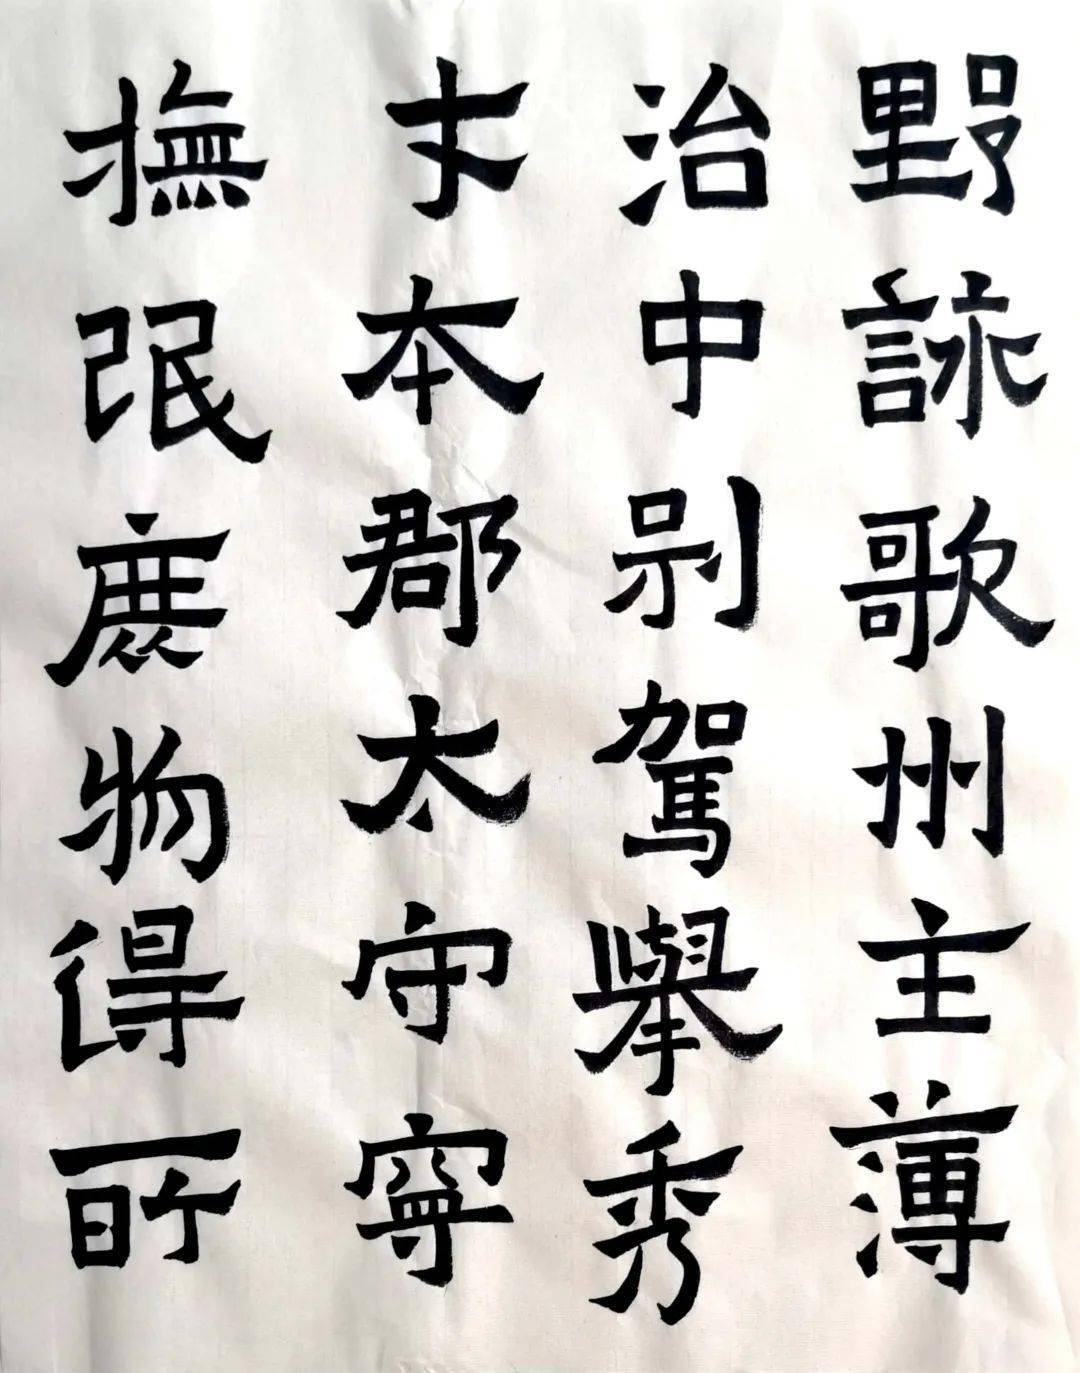 野詠歌州主薄
治中別駕舉秀
才本郡太守寧
撫氓庶物得所